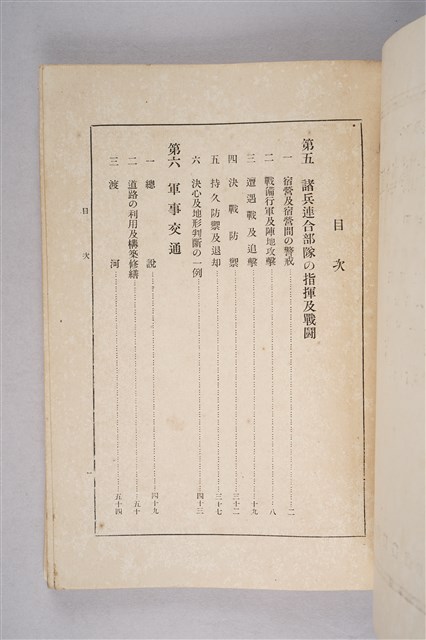 目次
第五 諸兵連合部隊の指揮及戰鬪
一 宿營及宿營間の警戒…………二
二 戰備行軍及陣地攻擊…………八
三 遭遇戰及追擊…………十九
四 決戰防禦…………三十二
五 持久防禦及退却…………三十七
六 決心及地形判斷の一例…………四十三
第六 軍事交通
一 總說…………四十九
二 道路の利用及構築修繕…………五十
三 渡河…………五十四
目次
一